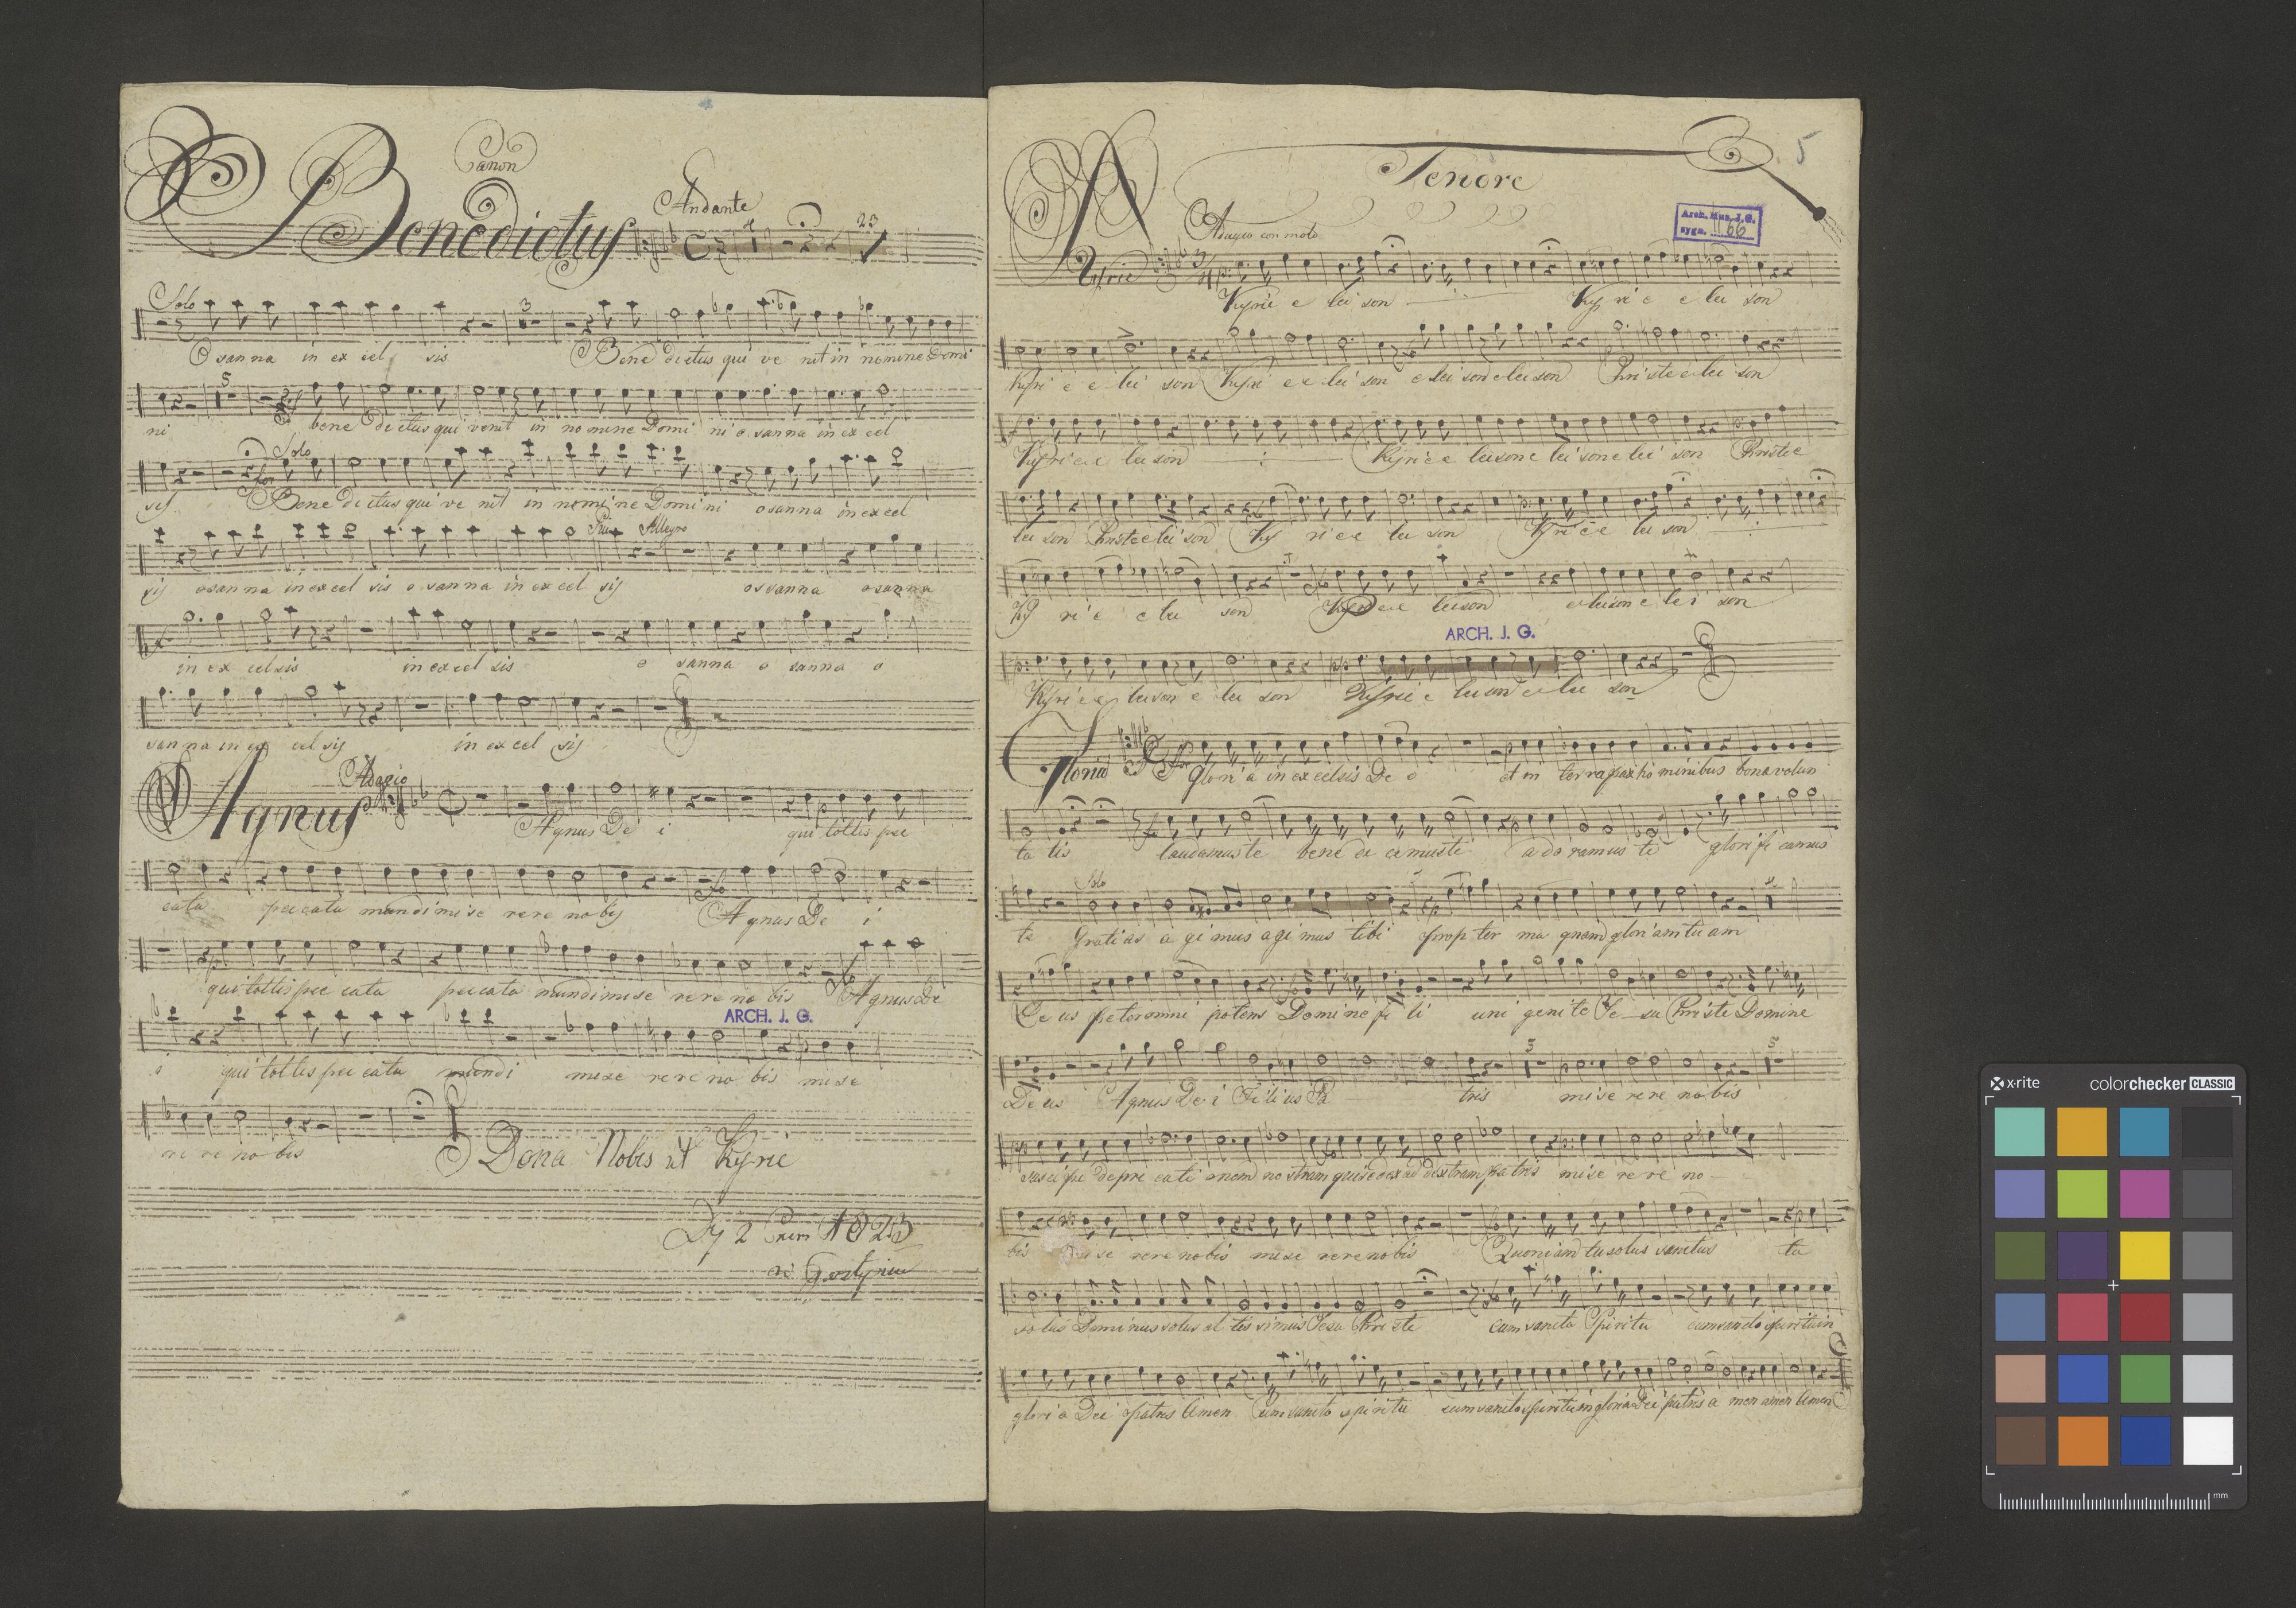 Canon
Benedictus Andante 23
Solo 3
Osanna in ex cel sis Bene dictus qui ve nit in nomine Domi
5
ni bene dictus qui venit in nomine Domi ni o sanna in ex cel
Solo
sis Bene dictus qui ve nit in nomi ne Domi ni osanna in excel
Allegro
sis osan na in excel sis o sanna in ex cel sis ossanna osanna
in ex celsis in excel sis o sanna o sanna o
sanna in ex cel sis in ex cel sis
Agnus Adagio
Agnus De i qui tollis pec
cata peccata mundi mise rere nobis Agnus De i
qui tollis pec cata peccata mundi mise rere no bis Agnus De
ARCH. J. G.
i qui tollis pec cata mundi mise rere no bis mise
re re no bis Dona Nobis ut Kyrie
Dy 2 1823
5
Tenore
Arch. Mus. J. G.
sygn. 66
Adagio con moto
Kyrie 3/4
Kyrie e lei son Ky ri e e lei son
Kyri e e lei son Kyri e e lei son e lei son e lei son Christe e lei son
Kyri e e lei son Kyri e e leison e lei son e lei son Christe e
lei son Christe e lei son Ky ri e e lei son Kyri e e lei son
Ky ri e e lei son Kyrie e leison e leison e lei son
ARCH. J. G.
Kyri e e leison e lei son Kyrie e leison e lei son
Gloria
Glori a in excelsis De o et in terra pax ho minibus bona volun
ta tis laudamus te bene di cimus te ado ramus te glori fi camus
Solo
te Gratias a gi mus agi mus tibi prop ter ma gnam gloriam tu am
De us pater omni potens Domine fi li uni genite Je su Christe Domine
3 5
De us Agnus De i Fi li us Pa tris mise re re no bis
susci pe depre cati onem nostram qui sedes ad dextram patris mise re re no
bis mise rere nobis mise rere nobis Quoniam tu solus sanctus tu
solus Dominus solus al tis simus Jesu Chri ste cum sancto Spiritu cum sancto spiritu in
glori a Dei patris Amen Cum sancto spiritu cum sancto spiritu in gloria Dei patris a men amen Amen
x-rite colorchecker CLASSIC
mm